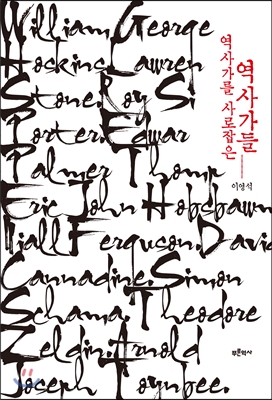 William George
Hoskins. Lawren
Stone. Roy Si
Porter. Edwar
Palmer Thomp
Eric John Hobsbawn
Niall Ferguson. David
Cannadine. Simon
Schama. Theodore
Zeldin. Arnold
Joseph Toynbee.
역사가를 사로잡은
역사가들
이영석
푸른역사